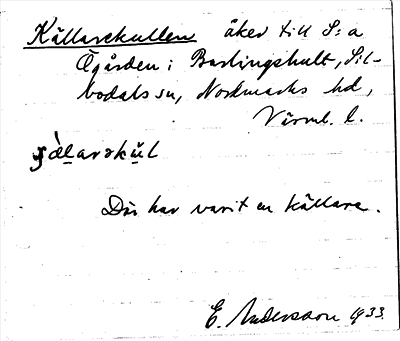 Källarekullen åker till S:a
Ögården i Bastingshult, Sil-
bodals sn, Nordmarks hd,
Värml. l.
Där har varit en källare.
E. Andersson 1933.